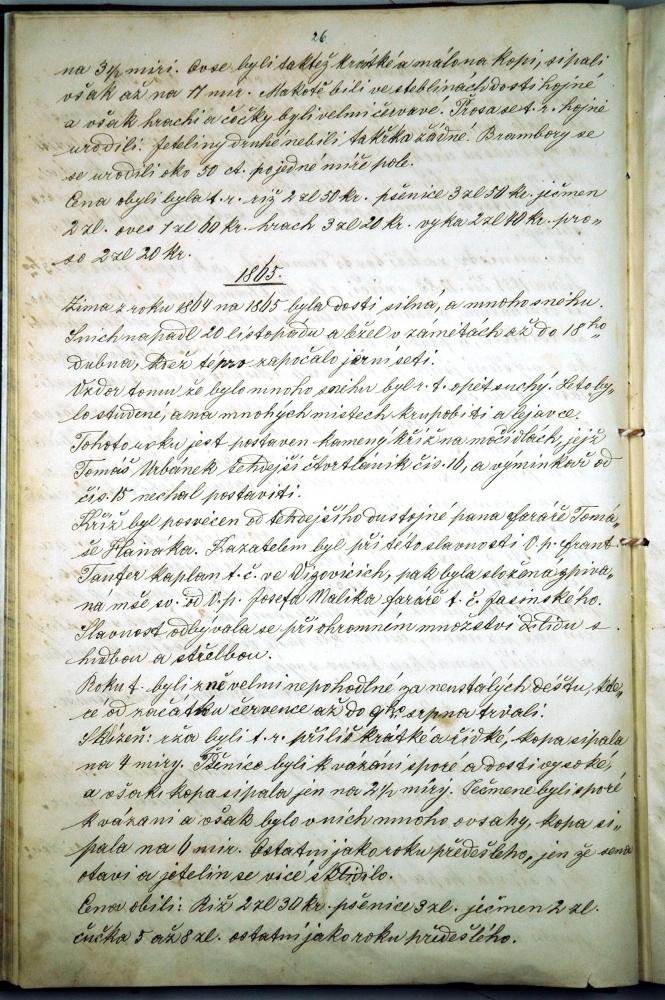 26
na 3½ miri. Ovse byli taktež krátké a málo na kopi, sipali
však až na 17 mir. Makotě bili ve steblinách dosti hojné
a však hrachi a čočky byli velmi červavé. Prosa se t. r. hojně
urodili: jeteliny druhé nebili takřka žádné. Brambory se
se urodili oko 50 ct. po jedné míře pole.
Cena obyli byla t. r. riž 2 zl 50 kr. pšenice 3 zl 50 kr. ječmen
2 zl. oves 1 zl 60 kr. hrach 3 zl 20 kr. vyka 2 zl 40 kr. pro„
so 2 zl 20 kr.
1865.
Zima z roku 1864 na 1865 byla dosti silná, a mnoho sněhu.
Snich napadl 20 listopadu a ležel v zamětách až do 18ho
Dubna, kdež téprv započalo jarní seti.
Vzdor tomu že bylo mnoho sněhu byl r. t. opět suchý. Leto by„
lo studene, a na mnohých mistech krupobiti a lejavce.
Tohoto roku jest postaven kamený kříž na močidlách, jejž
Tomáš Urbánek tehdejší čtvrtláník čís. 16, a výminkař od
čís. 15 nechal postaviti.
Kříž byl posvěcen od tehdejšího dustojné pana faráře Tomá„
še Hanaka. Kazatelem byl při této slavnosti V. p. Frant.
Taufer kaplan t. č. ve Vizovicích, pak byla složena zpiva„
ná mše sv. od V. p. Josefa Malika faráře t. č. Jasinského.
Slavnost odbývala se při ohromném množství lidu s
hudbou a střelbou.
Roku t. byli žně velmi nepohodlné za neustalých déštu, kte„
ré od začátku července až do 9ho srpna trvali.
Sklizeň: rža byli t. r. příliš krátké a řídké, kopa sipala
na 4 míry. Pšenice byli k vázání sporé a dosti vysoké,
a však kopa sipala jen na 2½ míry. Ječmené byli sporé
k vázani a však bylo v nich mnoho ovsahy, kopa si„
pala na 6 mir. Ostatní jako roku předešleho, jen že sena
otavi a jetelin se vice sklidilo.
Cena obili: Riž 2 zl 30 kr. pšenice 3 zl. ječmen 2 zl.
čučka 5 až 8 zl. ostatní jako roku předešlého.